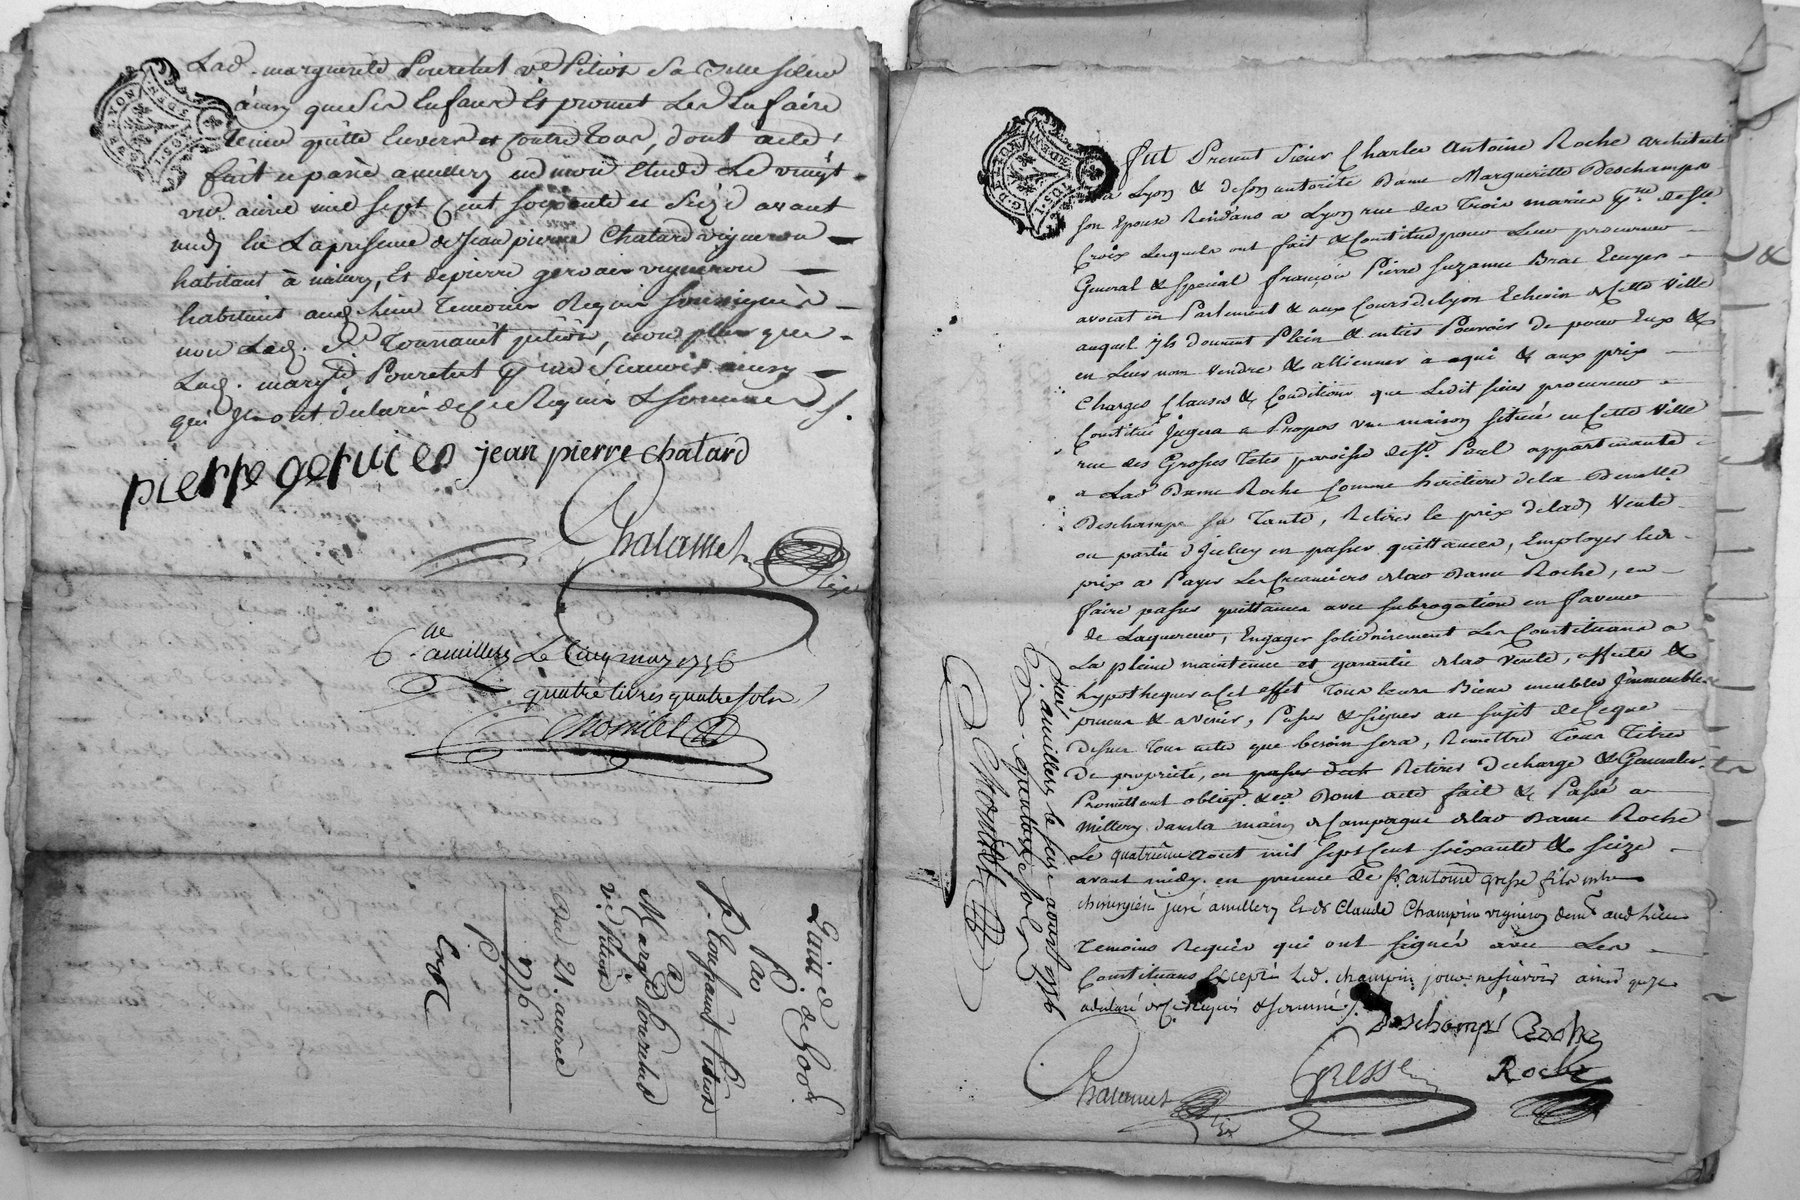 Lad. marguerite Pouretet ve Pition
ainsy que ses Enfans Et promet Les En faire
Tenir quitte Envers et Contre Tous, dont acte
fait et passé a millery en mon Etude Le vingt
un avril mil sept Cent soixante et Seize avant
midy En La presence de Jean pierre Chatard vigneron
habitant à millery, Et de pierre gervais vigneron
habitant aud. Lieu Temoins Requis soussignés
non Led. Toussaint pition, non plus que
Lad. margte. Pouretet
qu'ils ont declaré de ce Requis & sommés
pierre gervces jean pierre chatard
Chalamel
6.
a millery Le Cinq may 1776
quatre livres quatre sols
Chomilet
Quitce. de 600#
Par
St. Toussaint Pition
a
Marg. Pouretet
ve. Pition
Du 21. avril
1776
G. DE LYON
fut Present Sieur Charles Antoine Roche architecte
a Lyon & de son autorité Dame Margueritte Deschamps
son Epouse Residans a Lyon rue des Trois maries psse. de Ste
Croix Lesquels ont fait & Constitué pour Leur procureur
General & special François Pierre Suzanne Brac Ecuyer
avocat en Parlement & aux Cours de Lyon Echevin de Cette Ville
auquel ils donnent Plein & entier Pouvoir de pour Eux &
en Leur nom vendre & allienner a qui & aux prix
Charges Clauses & Conditions que Ledit sieur procureur
Constitué Jugera a Propos une maison située en Cette Ville
rue des Grosses Tetes paroisse de St. Paul appartenante
a Lad. Dame Roche Comme heritiere de la Demlle.
Deschamps sa Tante, Retirer le prix de lad. Vente
ou partie d'Iceluy en passer quittances, Employer led.
prix a Payer Les Creanciers de lad. Dame Roche, en
faire passer quittances avec subrogation en faveur
de L'aquereur, Engager solidairement Les Constituans a
La pleine maintenue et garantie de lad. Vente, affecter &
hypothequer a Cet effet Tous leurs Biens meubles & Immeubles
presens & avenir, Passer & signer au sujet de Ce que
dessus Tous actes que besoin sera, Remettre Tous Titres
De proprieté, en passer Retirer decharge & Generalemt.
Promettant oblige. &ca. Dont acte fait & Passé a
Millery dans la maison de Campagne de lad. Dame Roche
Le quatrieme aout mil sept Cent soixante & Seize
avant midy en presence de Sr. antoine gresse fils
chirurgien juré a millery Et de Claude Champin vigneron demt. aud. Lieu
Temoins Requis qui ont signés avec Les
Constituans Excepté Led. champin pour ne sçavoir ainsi qu'il
a declaré de Ce Requis & sommé
Deschamps Roche
Roche
Gresse
Chalamel
a millery le seize aoust 1776
quatorze sols
Chomilet